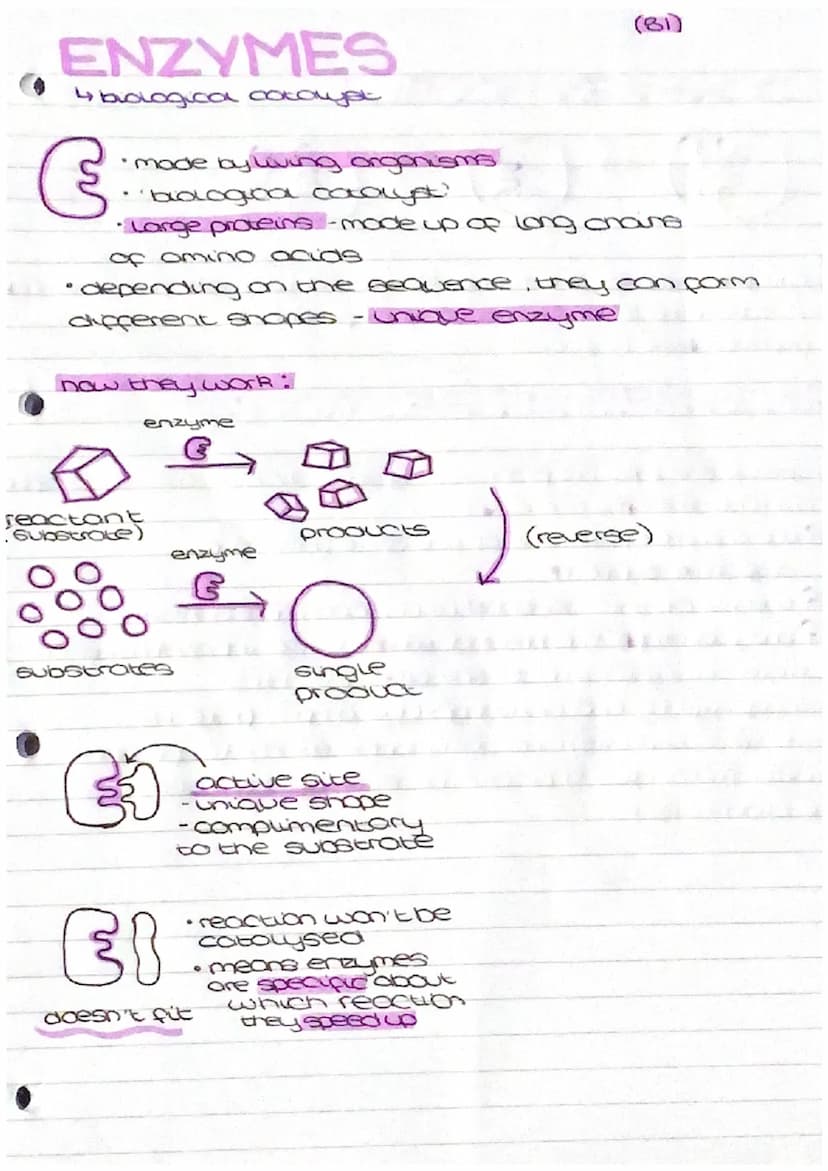 (B1)
ENZYMES
↳ biological catalyst
• made by living organisms
• 'biological catalyst'
• Large proteins - made up of long chains
of amino acids
• depending on the sequence, they can form
different shapes - unique enzyme
how they work:
enzyme
reactant
(substrate)
products
(reverse)
enzyme
substrates
single
product
active site
- unique shape
- complimentary
to the substrate
• reaction won't be
catalysed
• means enzymes
are specific about
which reaction
they speed up
doesn't fit